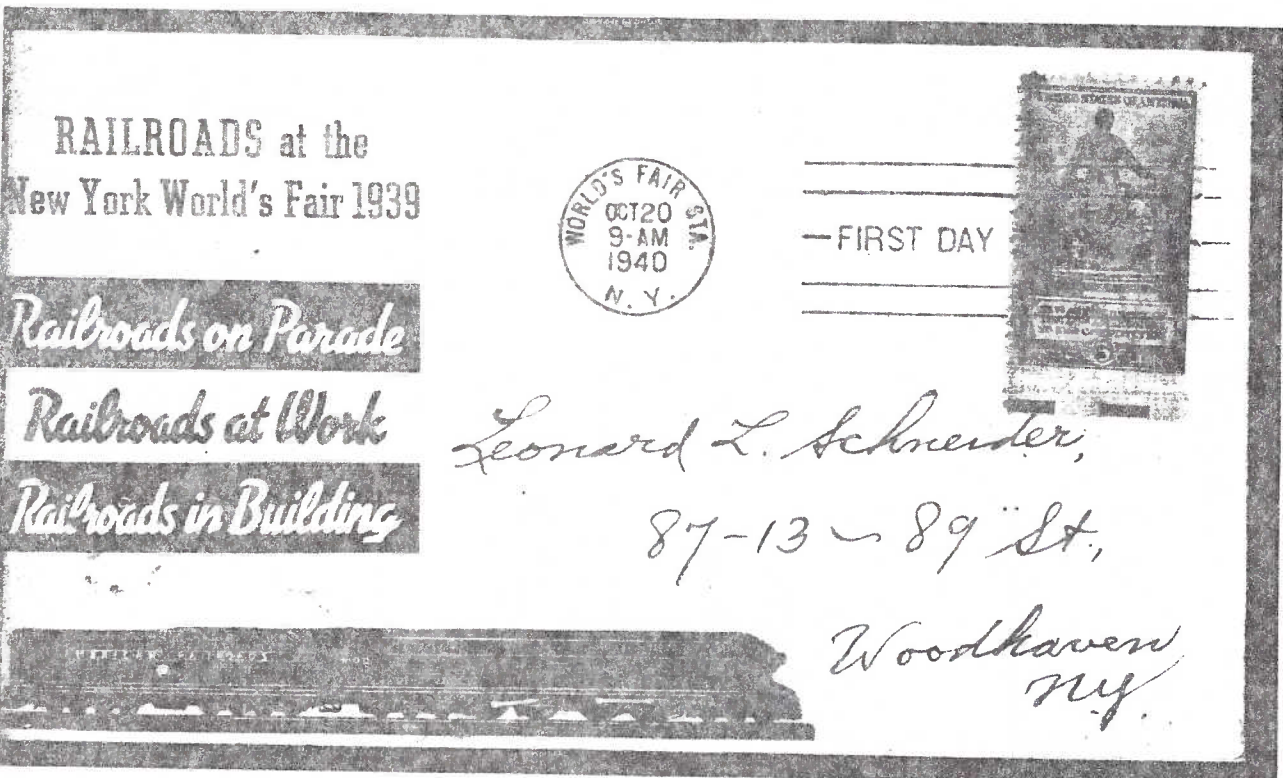 RAILROADS at the
New York World's Fair 1939
Railroads on Parade
Railroads at Work
Railroads in Building
WORLD'S FAIR STA.
OCT 20
9-AM
1940
N. Y.
FIRST DAY
UNITED STATES OF AMERICA
Leonard L. Schneider,
87-13 ~ 89" St.,
Woodhaven
NY.